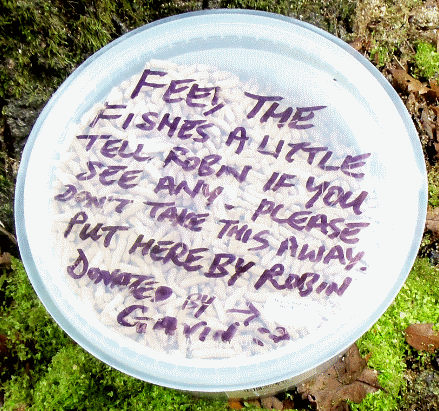 FEED THE
FISHES A LITTLE
TELL ROBIN IF YOU
SEE ANY - PLEASE
DON'T TAKE THIS AWAY.
PUT HERE BY ROBIN
DONATED BY →
GAVIN